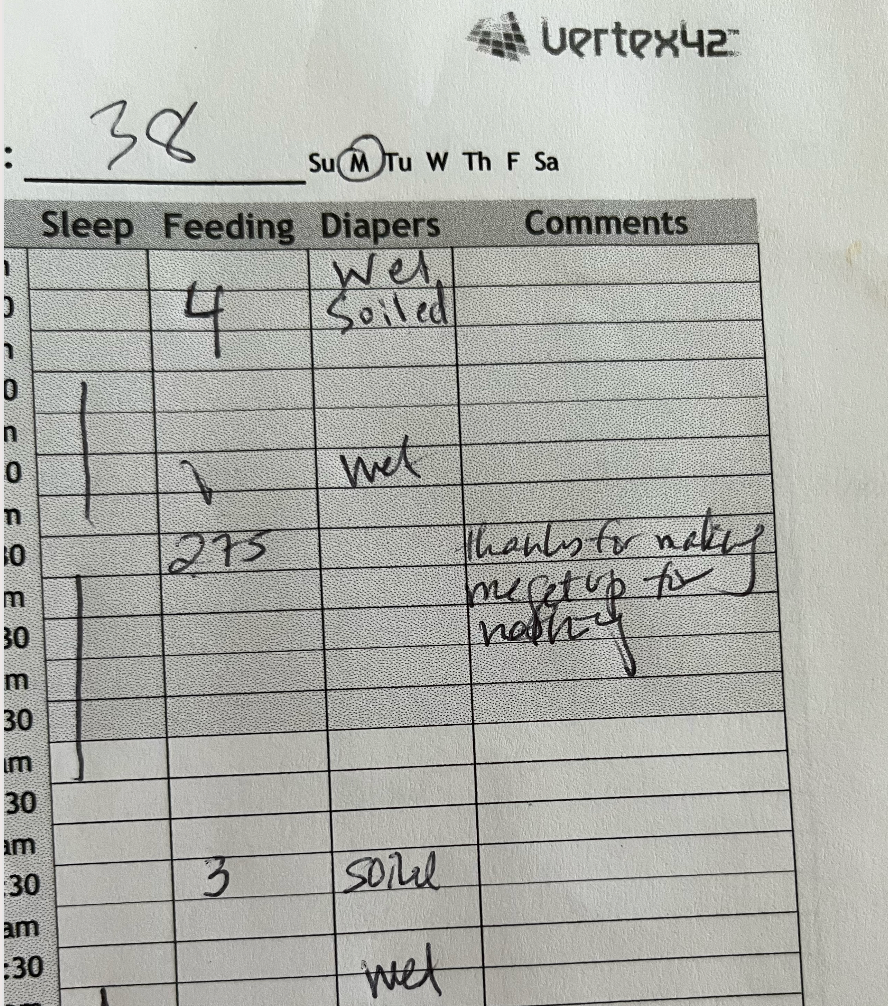 vertex42™
: 38 Su M Tu W Th F Sa
Sleep Feeding Diapers Comments
Wet,
0 4 Soiled
0
0 wet
30 275 thanks for making
m me get up for
30 nothing
m
30
am
30
am
:30 3 soiled
am
:30 wet